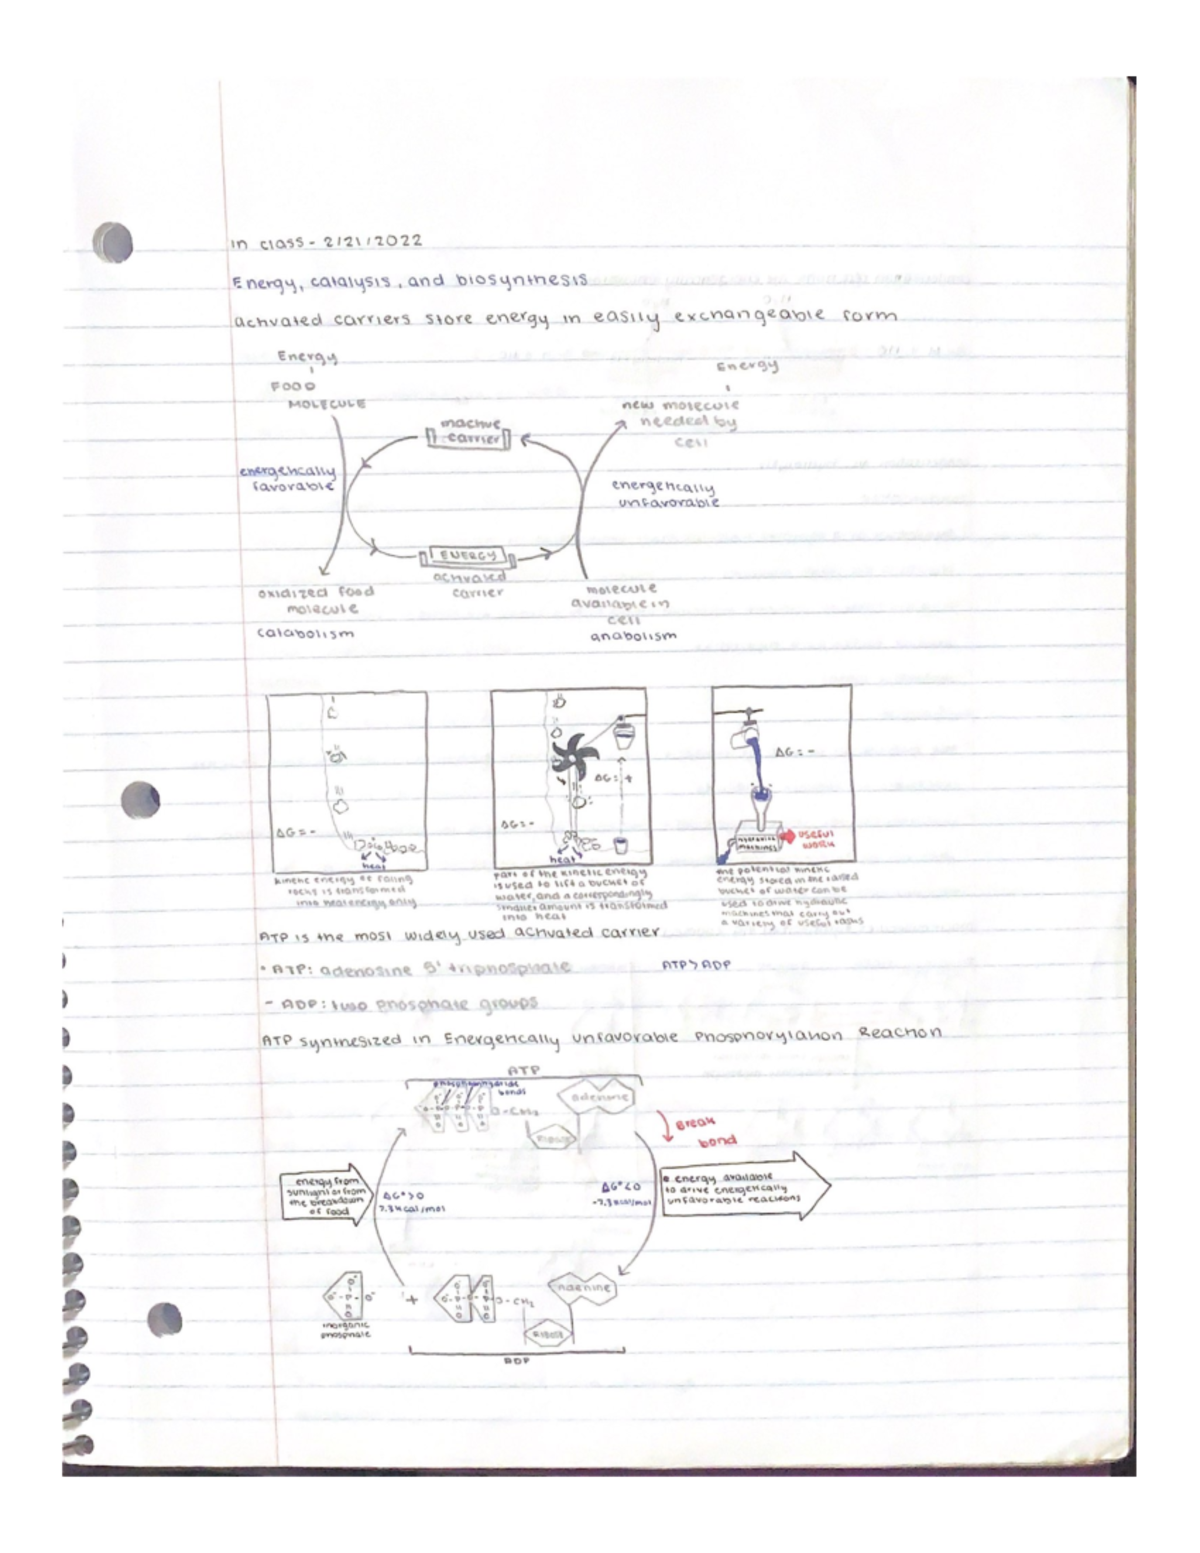 in class - 2/21/2022
Energy, catalysis, and biosynthesis
activated carriers store energy in easily exchangeable form
Energy
FOOD
MOLECULE
Energy
new molecule
needed by
cell
inactive
carrier
energetically
favorable
energetically
unfavorable
ENERGY
activated
carrier
oxidized food
molecule
catabolism
molecule
available in
cell
anabolism
ΔG = -
heat
kinetic energy of falling
rocks is transformed
into heat energy only
ΔG = +
ΔG = -
heat
part of the kinetic energy
is used to lift a bucket of
water, and a correspondingly
smaller amount is transformed
into heat
ΔG = -
hydraulic
machines
useful
work
the potential kinetic
energy stored in the raised
bucket of water can be
used to drive hydraulic
machines that carry out
a variety of useful tasks
ATP is the most widely used activated carrier
• ATP: adenosine 5' triphosphate ATP > ADP
- ADP: two phosphate groups
ATP synthesized in Energetically unfavorable Phosphorylation Reaction
ATP
phosphoanhydride
bonds
O-CH2
adenine
ribose
Break
bond
energy from
sunlight or from
the breakdown
of food
ΔG° > 0
7.3 kcal/mol
ΔG° < 0
-7.3 kcal/mol
energy available
to drive energetically
unfavorable reactions
inorganic
phosphate
+
O-CH2
adenine
ribose
ADP